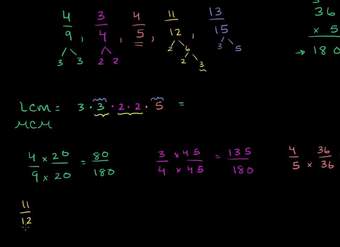 4/9, 3/4, 4/5, 11/12, 13/15
3 3 2 2 2 6 3 5
2 3
36
× 5
→ 180
LCM = 3 · 3 · 2 · 2 · 5 =
MCM
4 × 20 / 9 × 20 = 80/180
3 × 45 / 4 × 45 = 135/180
4 × 36 / 5 × 36
11/12